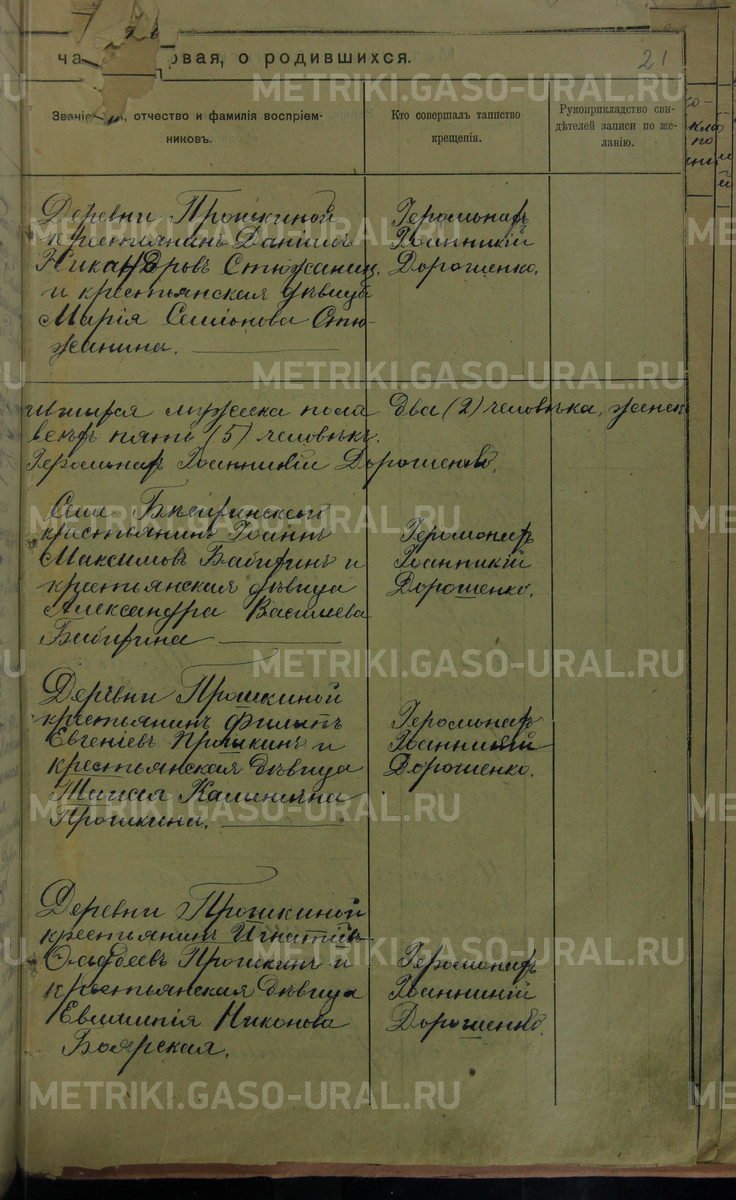 ча рвая, о родившихся.
21
Званіе, отчество и фамилія воспріем-
никовъ.
Кто совершалъ таинство
крещенія.
Рукоприкладство сви-
дѣтелей записи по же-
ланію.
Деревни Прошкиной
крестьянинъ Даніилъ
Никандровъ Стюжанинъ
и крестьянская дѣвица
Марія Семіонова Стю-
жанина.
Іеромонахъ
Іоанникій
Дорошенко.
мужеска пола два (2) человѣка, женск
пять (5) человѣкъ.
Іеромонах Іоанникій Дорошенко.
Села
крестьянинъ Іоаннъ
Максимовъ и
крестьянская дѣвица
Александра Васильева
Іеромонахъ
Іоанникій
Дорошенко.
Деревни Прошкиной
крестьянинъ Филиппъ
Евгеніевъ Прошкинъ и
крестьянская дѣвица
Таисія
Прошкина.
Іеромонахъ
Іоанникій
Дорошенко.
Деревни Прошкиной
крестьянинъ Игнатій
Прошкинъ и
крестьянская дѣвица
Евѳимія Никонова
Боярская.
Іеромонахъ
Іоанникій
Дорошенко.
METRIKI.GASO-URAL.RU